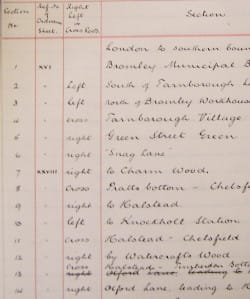 Section No. Ref. No. Ordnance Sheet. Right Left or Cross Road. Section
London to southern boun
1 XVI Bromley Municipal B
2 " Left South of Farnborough L
3 " left north of Bromley Workhouse
4 " cross Farnborough Village
5 " right Green Street Green
6 " right "Snag Lane"
7 XXVIII right to Charm Wood.
8 " Cross Pratts bottom - Chelsf
9 " right to Halstead
10 " left to Knockholt Station
11 " cross Halstead - Chelsfield
12 " right by Watercrofts Wood
13 " Cross Halstead -
right Otford Lane, leading to
14 " right Otford Lane, leading to H